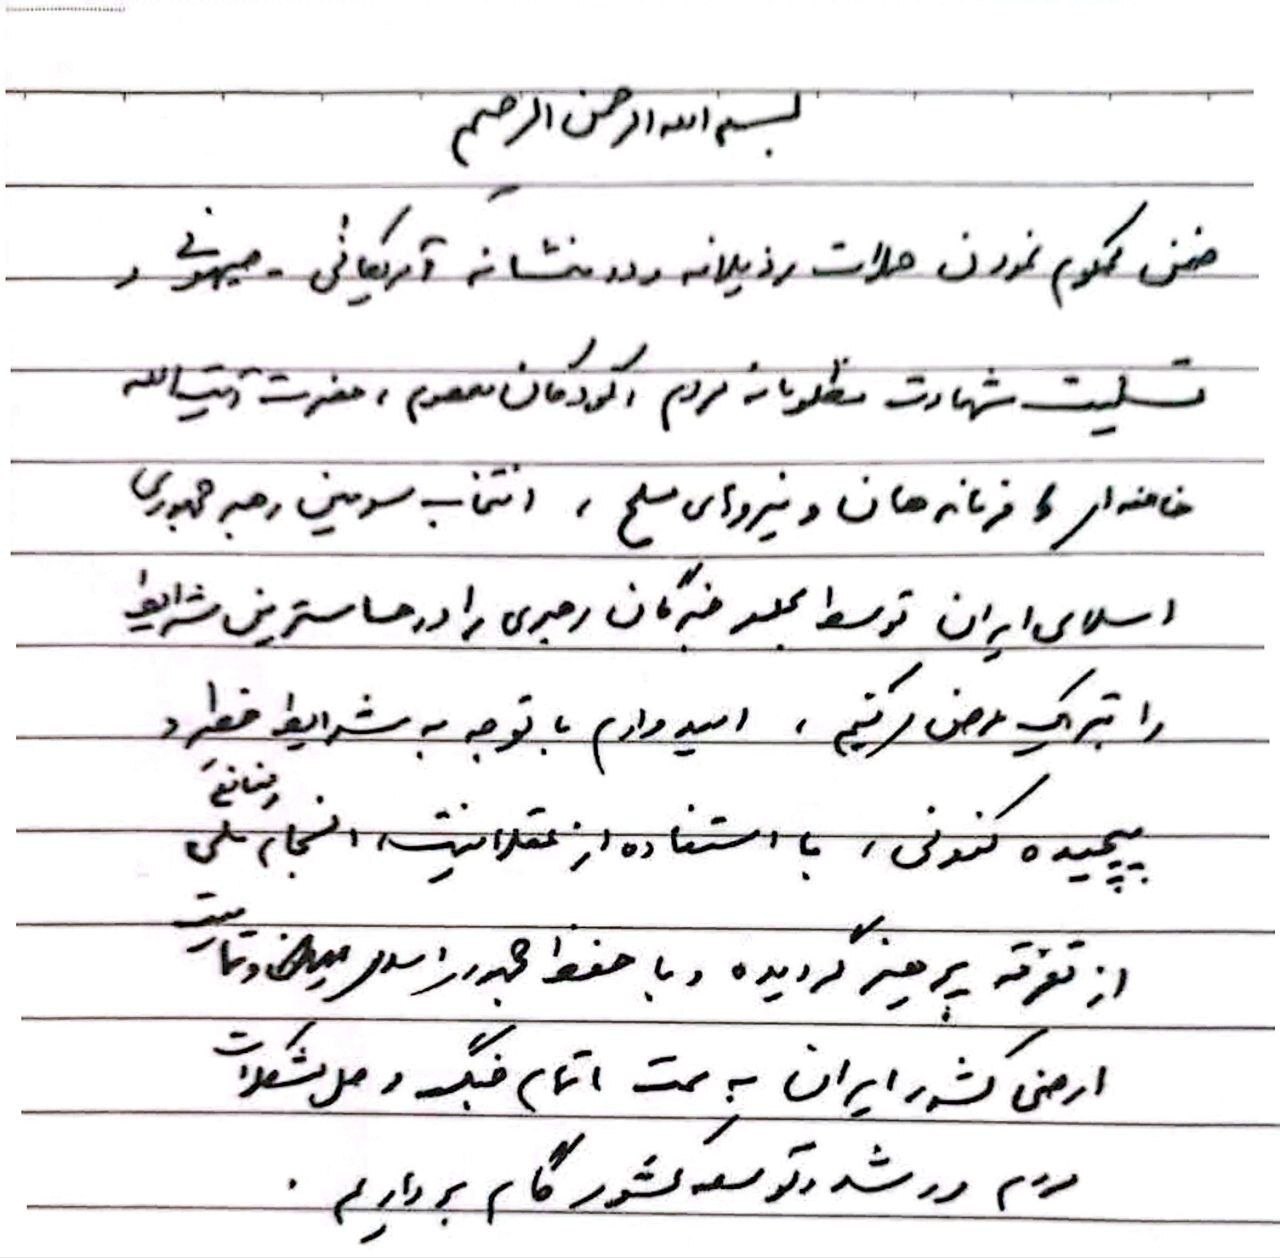 بسم الله الرحمن الرحیم
ضمن محکوم نمودن حملات رذیلانه و ددمنشانه آمریکائی - صهیونی و
تسلیت شهادت مظلومانه مردم، کودکان معصوم، حضرت آیت الله
خامنه‌ای و فرماندهان و نیروهای مسلح، انتخاب سومین رهبر جمهوری
اسلامی ایران توسط مجلس خبرگان رهبری را در حساسترین شرایط
را تبریک عرض می‌کنیم، امیدوارم با توجه به شرایط خطیر و
پیچیده کنونی، با استفاده از عقلانیت، انسجام ملی و منافع
از تفرقه پرهیز گردیده و با حفظ جمهوری اسلامی و تمامیت
ارضی کشور ایران به سمت اتمام جنگ و حل مشکلات
مردم و رشد و توسعه کشور گام برداریم.